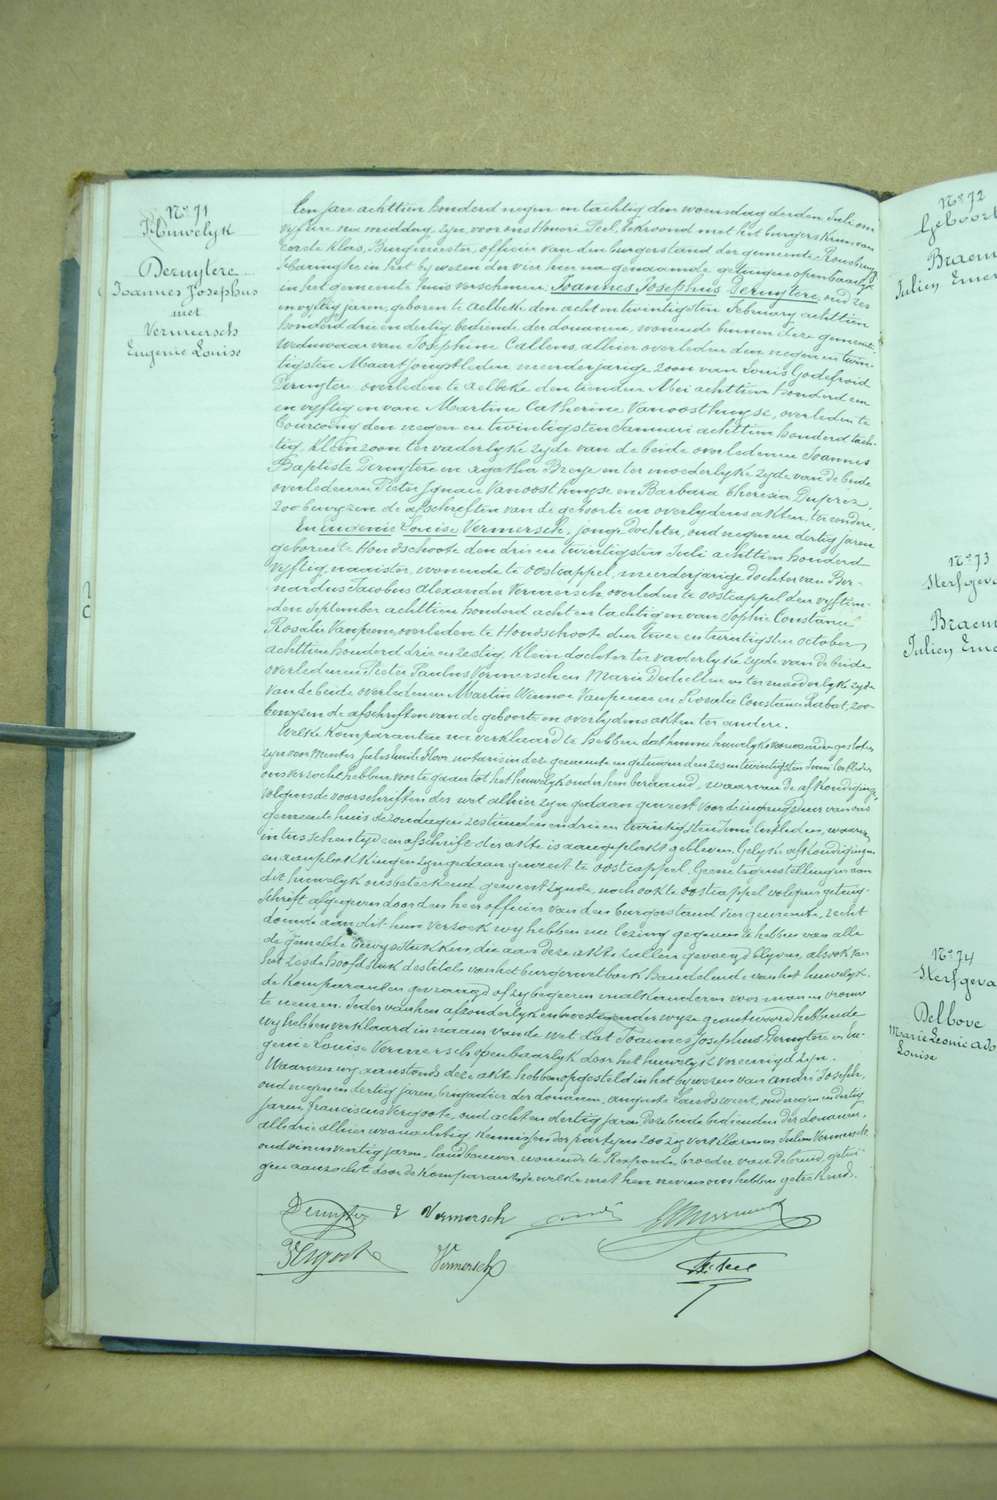 No 71
Huwelyk
Deruytere
Joannes Josephus
met
Vermersch
Eugenie Louise
Een jare achttien honderd negen en tachtig den woensdag derden Juli om
vyf ure na middag, zyn voor ons Henri Teel, bekroond met het burgerskruis van
eerste klas, Burgmeester, officier van den burgerstand der gemeente Rousbrugge
Haringhe in het bywezen der vier hier na genaamde getuigen openbaarlyk
in het gemeente huis verschenen: Joannes Josephus Deruytere, oud zes
en vyftig jaren, geboren te Aelbeke den acht en twintigsten February achttien
honderd drie en dertig bediende der douanen, wonende binnen deze gemeente,
weduwaar van Josephine Callens, alhier overleden den negen en twin-
tigsten Maart jongstleden meerderjarige zoon van Louis Godefroid
Deruytere overleden te Aelbeke den tienden Mei achttien honderd een
en vyftig en van Martine Catherine Vanoosthuyse, overleden te
Tourcoing den negen en twintigsten Januari achttien honderd tach-
tig. Kleinzoon ter vaderlyke zyde van de beide overledenen Joannes
Baptiste Deruytere en Agatha Breye en ter moederlyke zyde van de beide
overledenen Pieter Ignace Vanoosthuyse en Barbara Theresia Duprez,
zoo bewyzen de afschriften van de geboorte en overlydensakten, ter eendere.
En Eugenie Louise Vermersch, jonge dochter, oud negen en dertig jaren
geboren te Hondschoote den drie en twintigsten Juli achttien honderd
vyftig, naaister, wonende te Oostcappel, meerderjarige dochter van Ber-
nardus Jacobus Alexander Vermersch overleden te Oostcappel den vyftien-
den September achttien honderd acht en tachtig en van Sophie Constance
Rosalie Vanpeene, overleden te Hondschoote den twee en twintigsten october
achttien honderd drie en zestig. Klein dochter ter vaderlyke zyde van de beide
overledenen Pieter Paulus Vermersch en Marie en ter moederlyke zyde
van de beide overledenen Martin Winnoc Vanpeene en Rosalie Constance Rabat, zoo
bewyzen de afschriften van de geboorte en overlydens akten ter andere.
Welke komparanten na verklaard te hebben dat hunne huwelyksvoorwaarden gesloten
zyn voor Meester Jules Emile Floor, notaris in deze gemeente en getuigen den zes en twintigsten Juni lestleden
ons verzocht hebben voor te gaan tot het huwelyk onder hen beraamd, waarvan de afkondigingen
volgens de voorschriften der wet alhier zyn gedaan geweest voor de ingangdeur van ons
gemeente huis de zondagen zestienden en drie en twintigsten Juni lestleden, waarvan
in tusschentyd een afschrift der akte is aangeplakt gebleven. Gelyke afkondigingen
en aanplakkingen zyn gedaan geweest te Oostcappel. Geene tegenstellingen aan
dit huwelyk ons beteekend geweest zynde, noch ook te Oostcappel volgens getuig-
schrift afgegeven door den heer officier van den burgerstand dier gemeente, recht
doende aan dit hun verzoek wy hebben na lezing gegeven te hebben van alle
de gemelde bewysstukken, die aan deze akte zullen gevoegd blyven, alsook van
het zesde hoofdstuk des titels van het burgerwetboek handelende van het huwelyk,
de komparanten gevraagd of zy begeeren malkanderen voor man en vrouw
te nemen. Ieder van hen afzonderlyk en bevestigender wyze geantwoord hebbende
wy hebben verklaard in naam van de wet dat Joannes Josephus Deruytere en Eu-
genie Louise Vermersch openbaarlyk door het huwelyk vereenigd zyn.
Waarvan wy aanstonds deze akte hebben opgesteld in het bywezen van André Joseph,
oud negen en dertig jaren, brigadier der douanen, Auguste Landsweert, oud negen en dertig
jaren, Franciscus Vergoote, oud acht en dertig jaren, deze beide bedienden der douanen,
alle drie alhier woonachtig kennissen der partyen zoo zy verklaren en Julien Vermersch
oud vier en veertig jaren, landbouwer wonende te Rexpoede, broeder van de bruid, getui-
gen aanzocht door de komparanten, welke met hen nevens ons hebben geteekend.
Deruytere E Vermersch André
Vergoote Vermersch H. Teel
No 72
Geboorte
Julien
No 73
Sterfgeva
Julien
No 74
Sterfgeva
Delbove
Marie Leonie
Louise